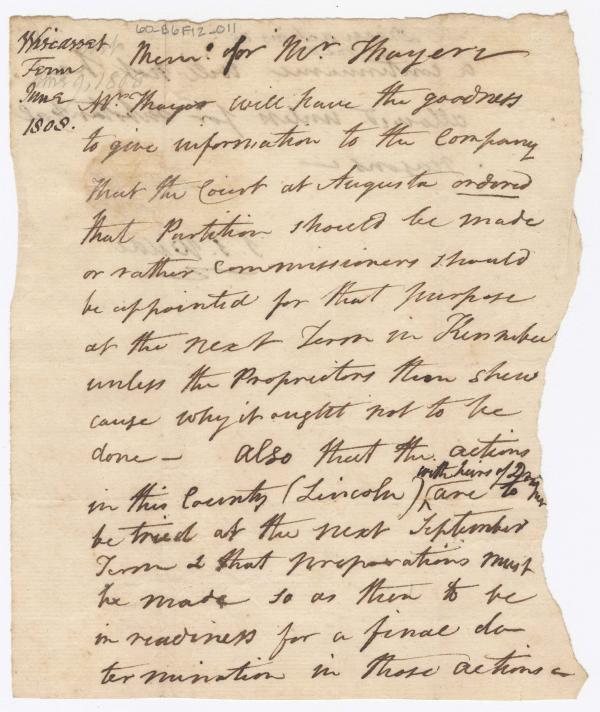 60-B6F12-011
Wiscasset
Term
June
1808.
Mem.o for Mr Thayer
Mr Thayer will have the goodness
to give information to the Company
that the Court at Augusta ordered
that Partition should be made
or rather Commissioners should
be appointed for that purpose
at the next Term in Kennebec
unless the Proprietors then shew
cause why it ought not to be
done — Also that the actions
in this County (Lincoln) with heirs of are to
be tried at the next September
Term & that preparations must
be made so as then to be
in readiness for a final de-
termination in those actions